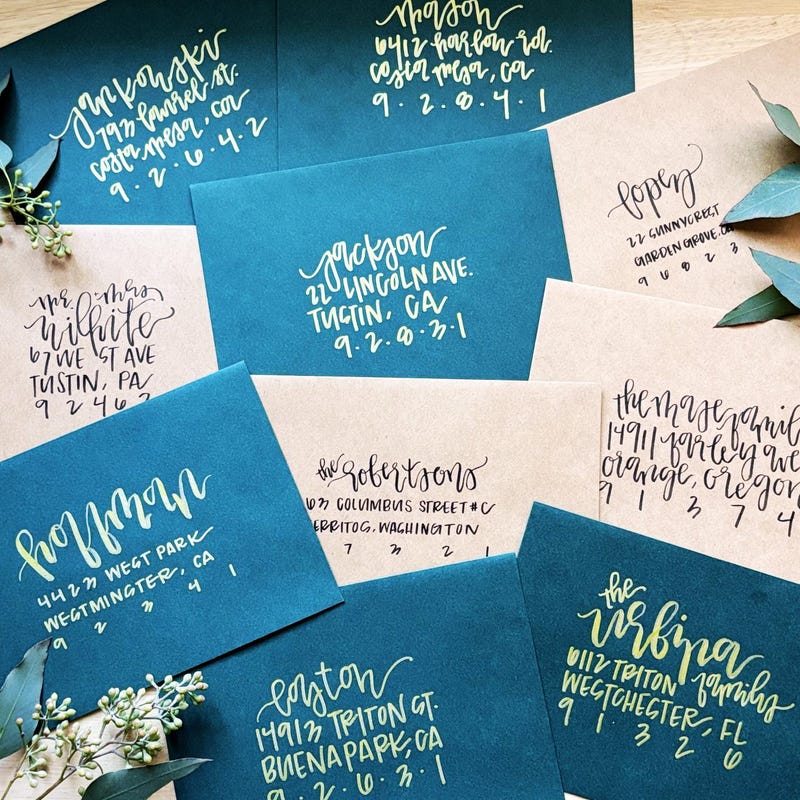 jankowski
793 laurel st.
costa mesa, ca
9 · 2 · 6 · 4 · 2
mason
6412 harlon rd.
costa mesa, ca
9 · 2 · 8 · 4 · 1
lopez
22 SUNNYCREST
GARDEN GROVE, CA
9 6 8 2 3
jackson
22 LINCOLN AVE.
TUSTIN, CA
9 · 2 · 8 · 3 · 1
mr. & mrs
wilhite
67 WEST AVE
TUSTIN, PA
9 2 4 6
the mase famil
14911 farley ave
orange, oregon
9 1 3 7 4
hoffman
4423 WEST PARK
WESTMINSTER, CA
9 2 3 4 1
the robertsons
63 COLUMBUS STREET #C
ERRITOS, WASHINGTON
7 3 2 1
the
urbina
family
6112 TRITON
WESTCHESTER, FL
9 1 3 2 6
14913 TRITON ST.
BUENA PARK, CA
9 · 2 · 6 · 3 · 1